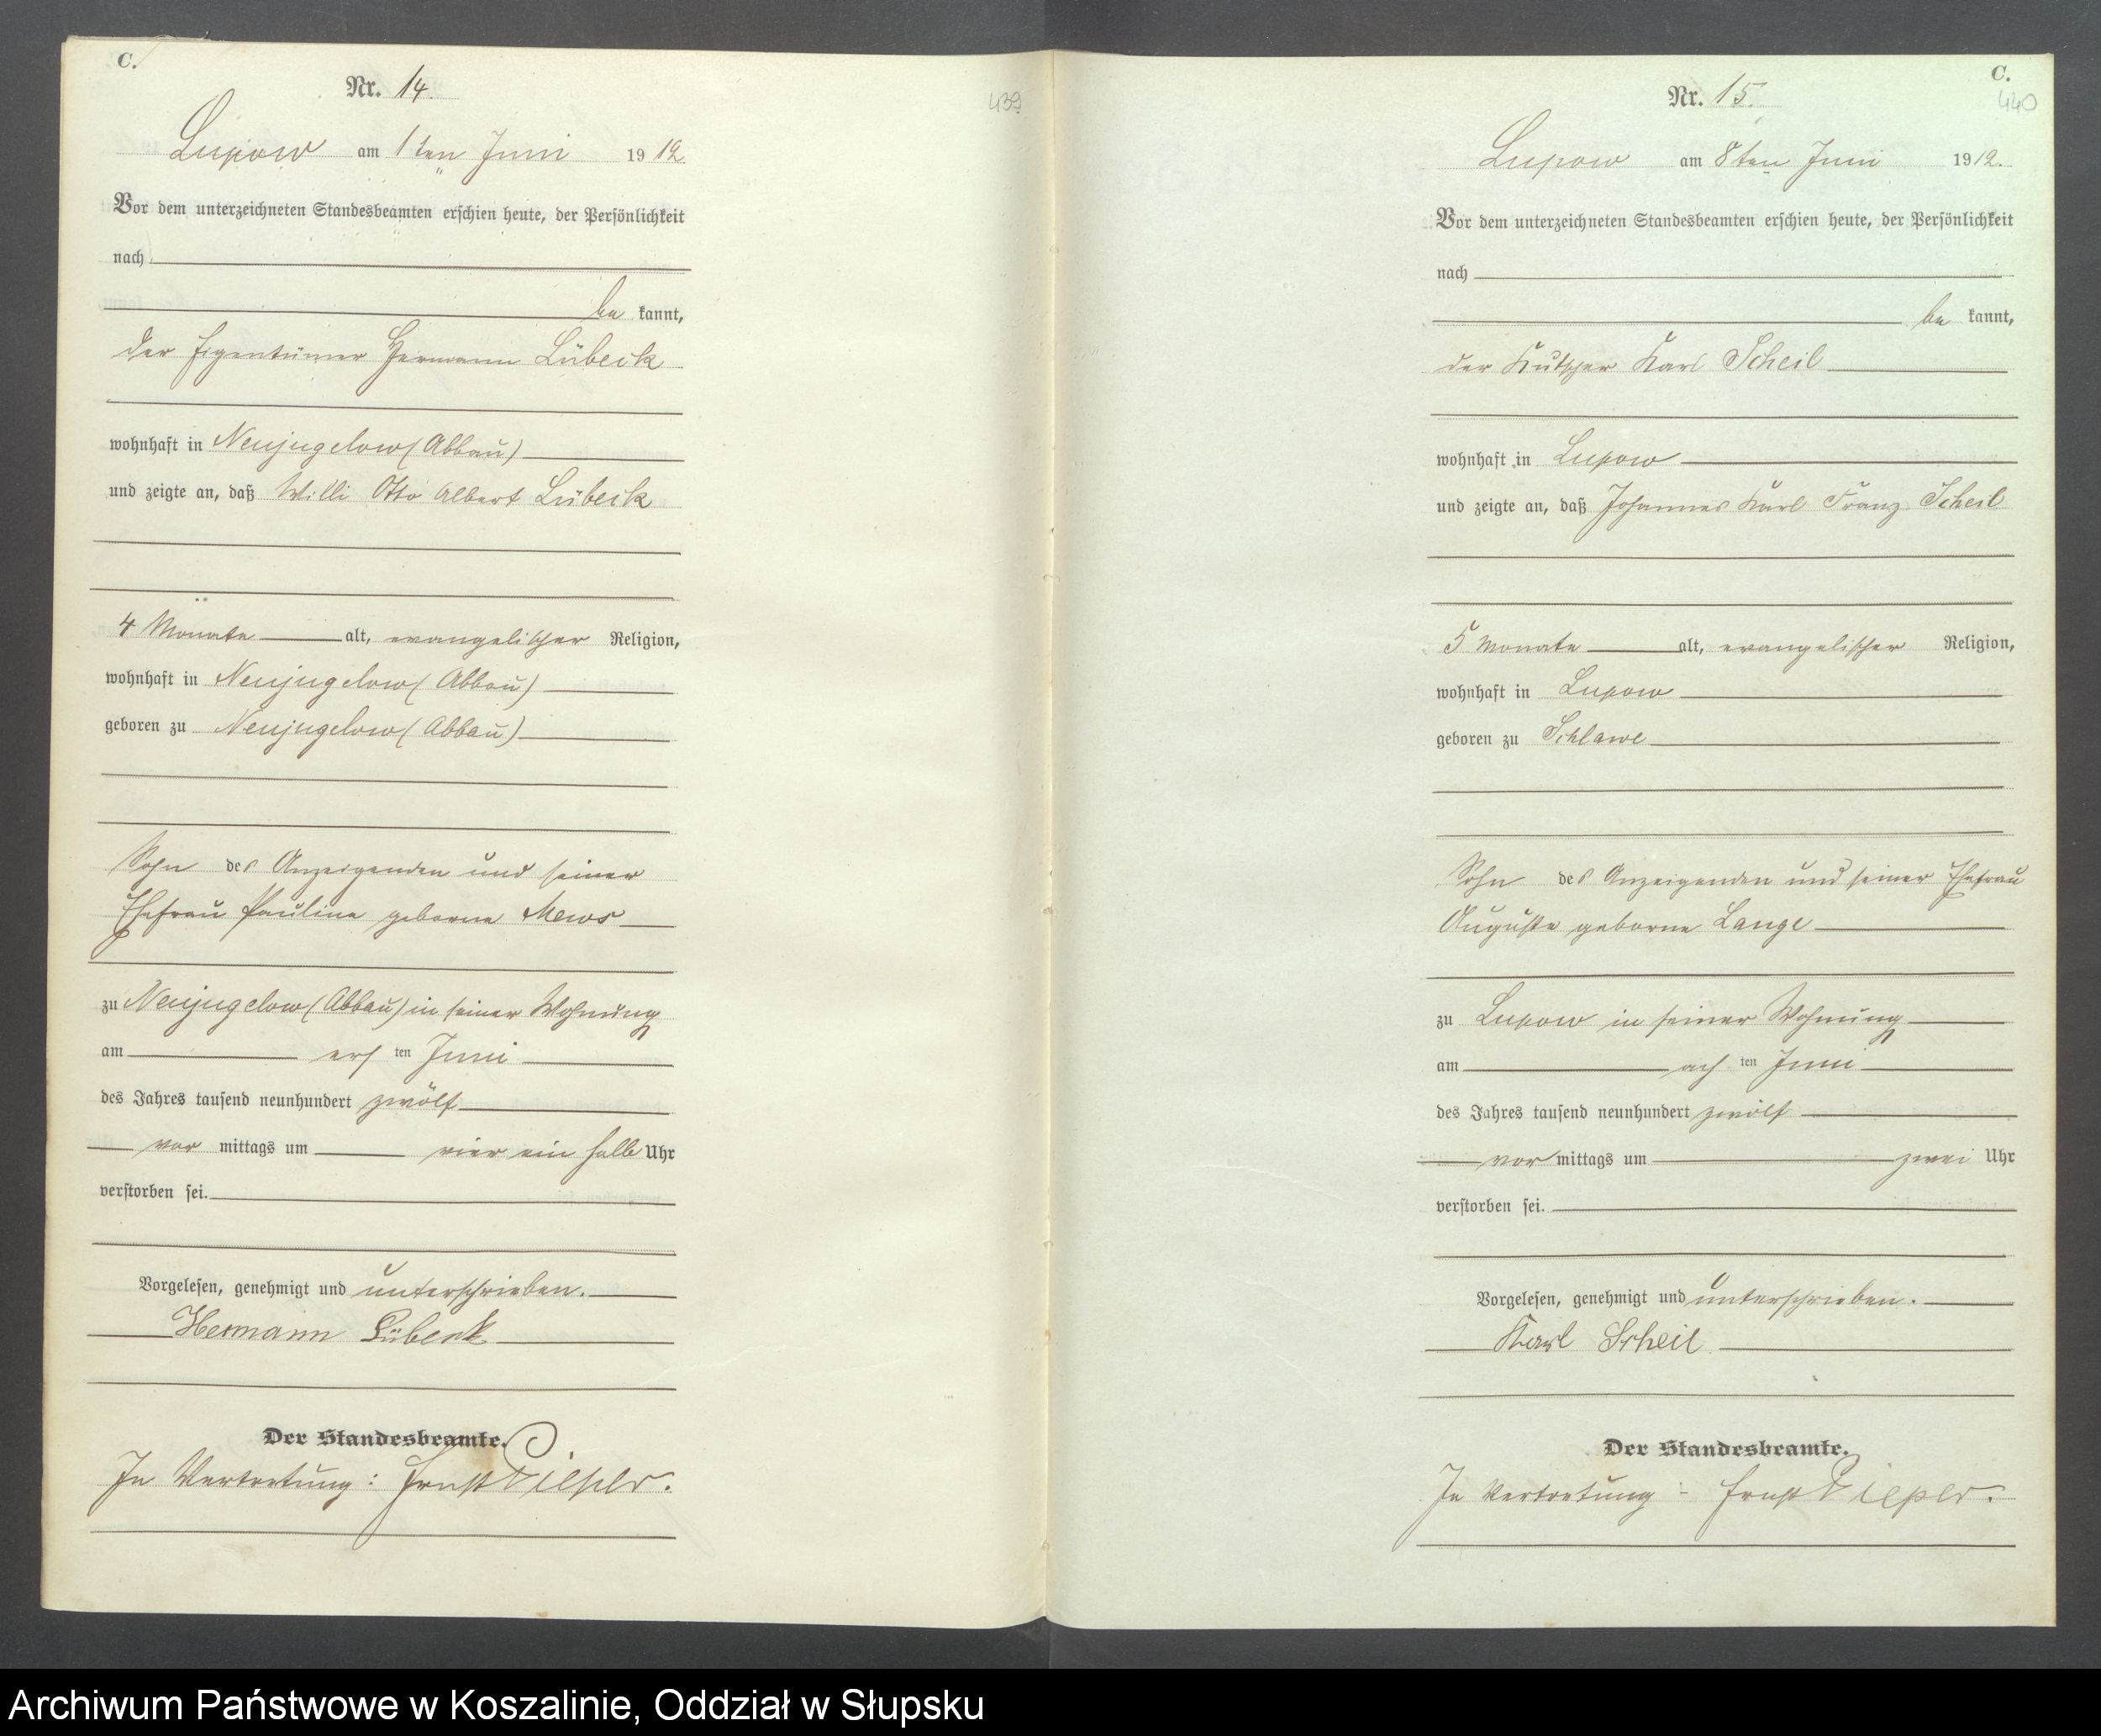 C.
Nr. 14.
439
Lupow am 1ten Juni 1912.
Vor dem unterzeichneten Standesbeamten erschien heute, der Persönlichkeit
nach
be kannt,
der Eigentümer Hermann Lübeck
wohnhaft in Neujugelow (Abbau)
und zeigte an, daß Willi Otto Albert Lübeck
4 Monate alt, evangelischer Religion,
wohnhaft in Neujugelow (Abbau)
geboren zu Neujugelow (Abbau)
Sohn des Anzeigenden und seiner
Ehefrau Pauline geborne Mews
zu Neujugelow (Abbau) in seiner Wohnung
am ers ten Juni
des Jahres tausend neunhundert zwölf
vor mittags um vier ein halb Uhr
verstorben sei.
Vorgelesen, genehmigt und unterschrieben.
Hermann Lübeck
Der Standesbeamte.
In Vertretung: Ernst Pieper.
C.
440
Nr. 15.
Lupow am 8ten Juni 1912.
Vor dem unterzeichneten Standesbeamten erschien heute, der Persönlichkeit
nach
be kannt,
der Kutscher Karl Scheil
wohnhaft in Lupow
und zeigte an, daß Johannes Karl Franz Scheil
5 Monate alt, evangelischer Religion,
wohnhaft in Lupow
geboren zu Schlawe
Sohn des Anzeigenden und seiner Ehefrau
Auguste geborne Lange
zu Lupow in seiner Wohnung
am ach ten Juni
des Jahres tausend neunhundert zwölf
vor mittags um zwei Uhr
verstorben sei.
Vorgelesen, genehmigt und unterschrieben.
Karl Scheil
Der Standesbeamte.
In Vertretung: Ernst Pieper.
Archiwum Państwowe w Koszalinie, Oddział w Słupsku